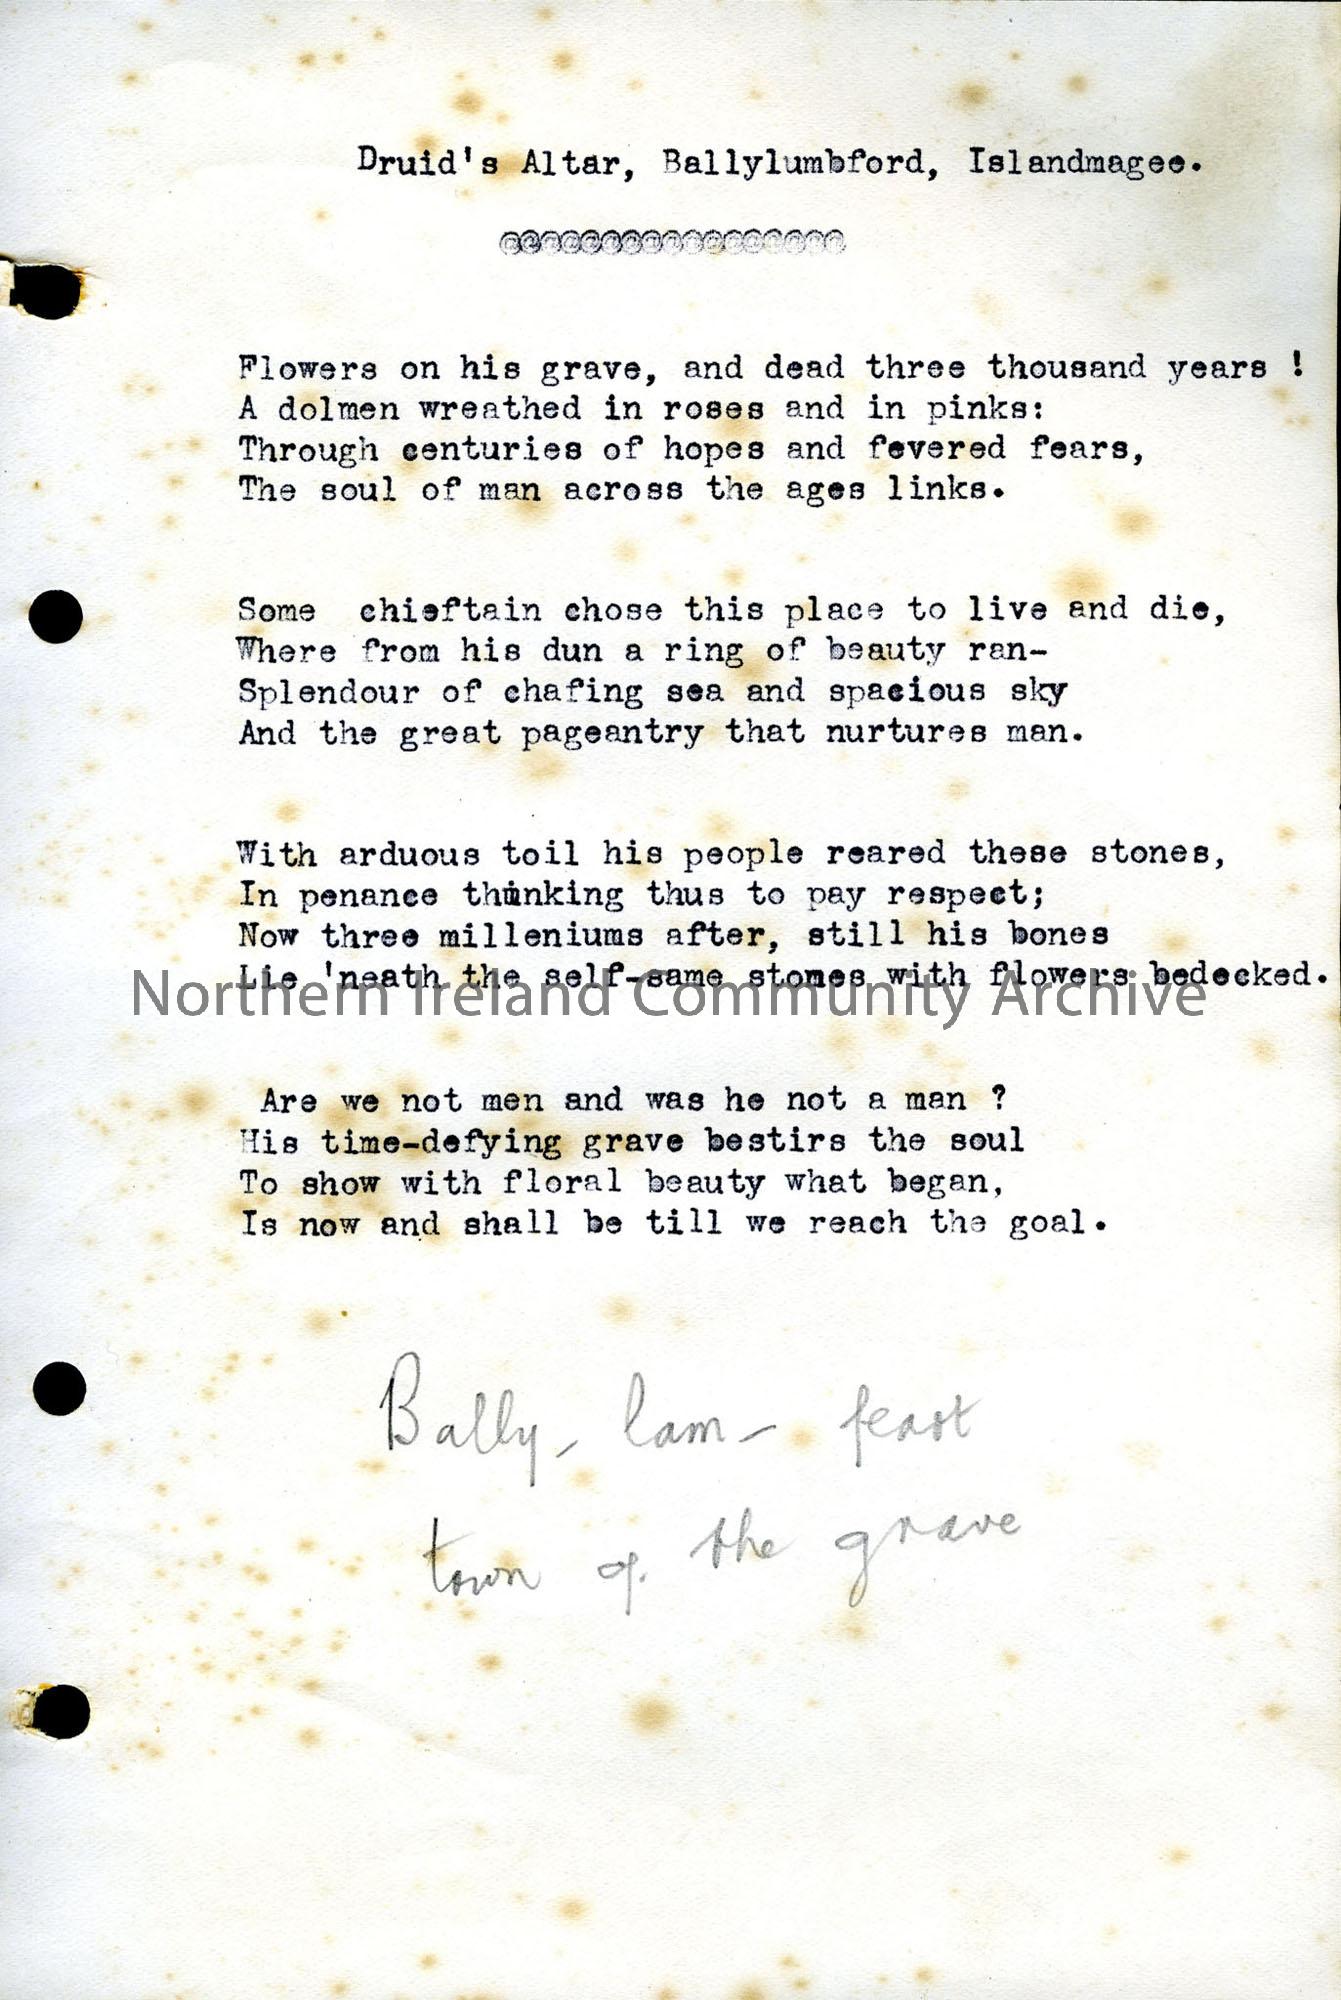 Druid's Altar, Ballylumbford, Islandmagee.
@@@@@@@@@@@@@@@@@
Flowers on his grave, and dead three thousand years !
A dolmen wreathed in roses and in pinks:
Through centuries of hopes and fevered fears,
The soul of man across the ages links.
Some chieftain chose this place to live and die,
Where from his dun a ring of beauty ran-
Splendour of chafing sea and spacious sky
And the great pageantry that nurtures man.
With arduous toil his people reared these stones,
In penance thinking thus to pay respect;
Now three milleniums after, still his bones
Lie 'neath the self-same stones with flowers bedecked.
Northern Ireland Community Archive
Are we not men and was he not a man ?
His time-defying grave bestirs the soul
To show with floral beauty what began,
Is now and shall be till we reach the goal.
Bally - lam - feart
town of the grave